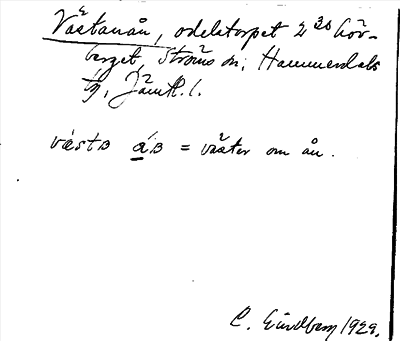 Västanån, odelstorpet 2 30 Hör-
berget, Ströms sn, Hammerdals
tg, Jämtl. l.
västɒ áɒ = väster om ån.
C. Lindberg 1929.